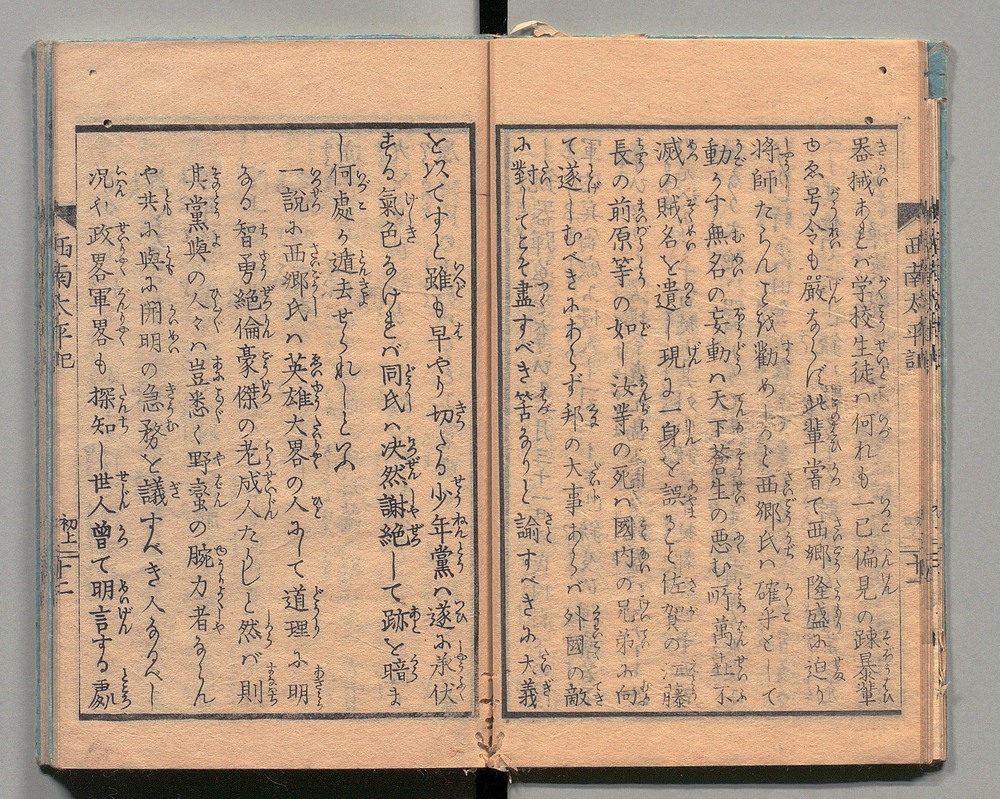 器械あれバ学校生徒ハ何れも一已偏見の踈暴輩
ゆゑ号令も嚴ならバ此輩嘗て西郷隆盛に迫り
将師たらんことを勸めしかど西郷氏ハ確乎として
動かず無名の妄動ハ天下蒼生の悪む所萬世不
滅の賊名を遺し現に一身を誤ること佐賀の江藤
長の前原等の如し汝等の死ハ國内の兄弟に向
て遂しむべきにあらず邦の大事あらバ外國の敵
に對してこそ盡すべき筈なりと諭すべきに大義
を以てすと雖も早やり切たる少年黨ハ遂に承伏
する氣色なけれバ同氏ハ决然謝絶して跡を暗ま
し何處か遁去せられしといふ
一説に西郷氏ハ英雄大畧の人にして道理に明
なる智勇絶倫豪傑の老成人たりと然バ則
其黨與の人々ハ豈悉く野蛮の腕力者ならん
や共に與に開明の急務を議すべき人なるべし
况や政畧軍畧も探知し世人曾て明言する處
西南太平記
初上ノ十二
西南太平記